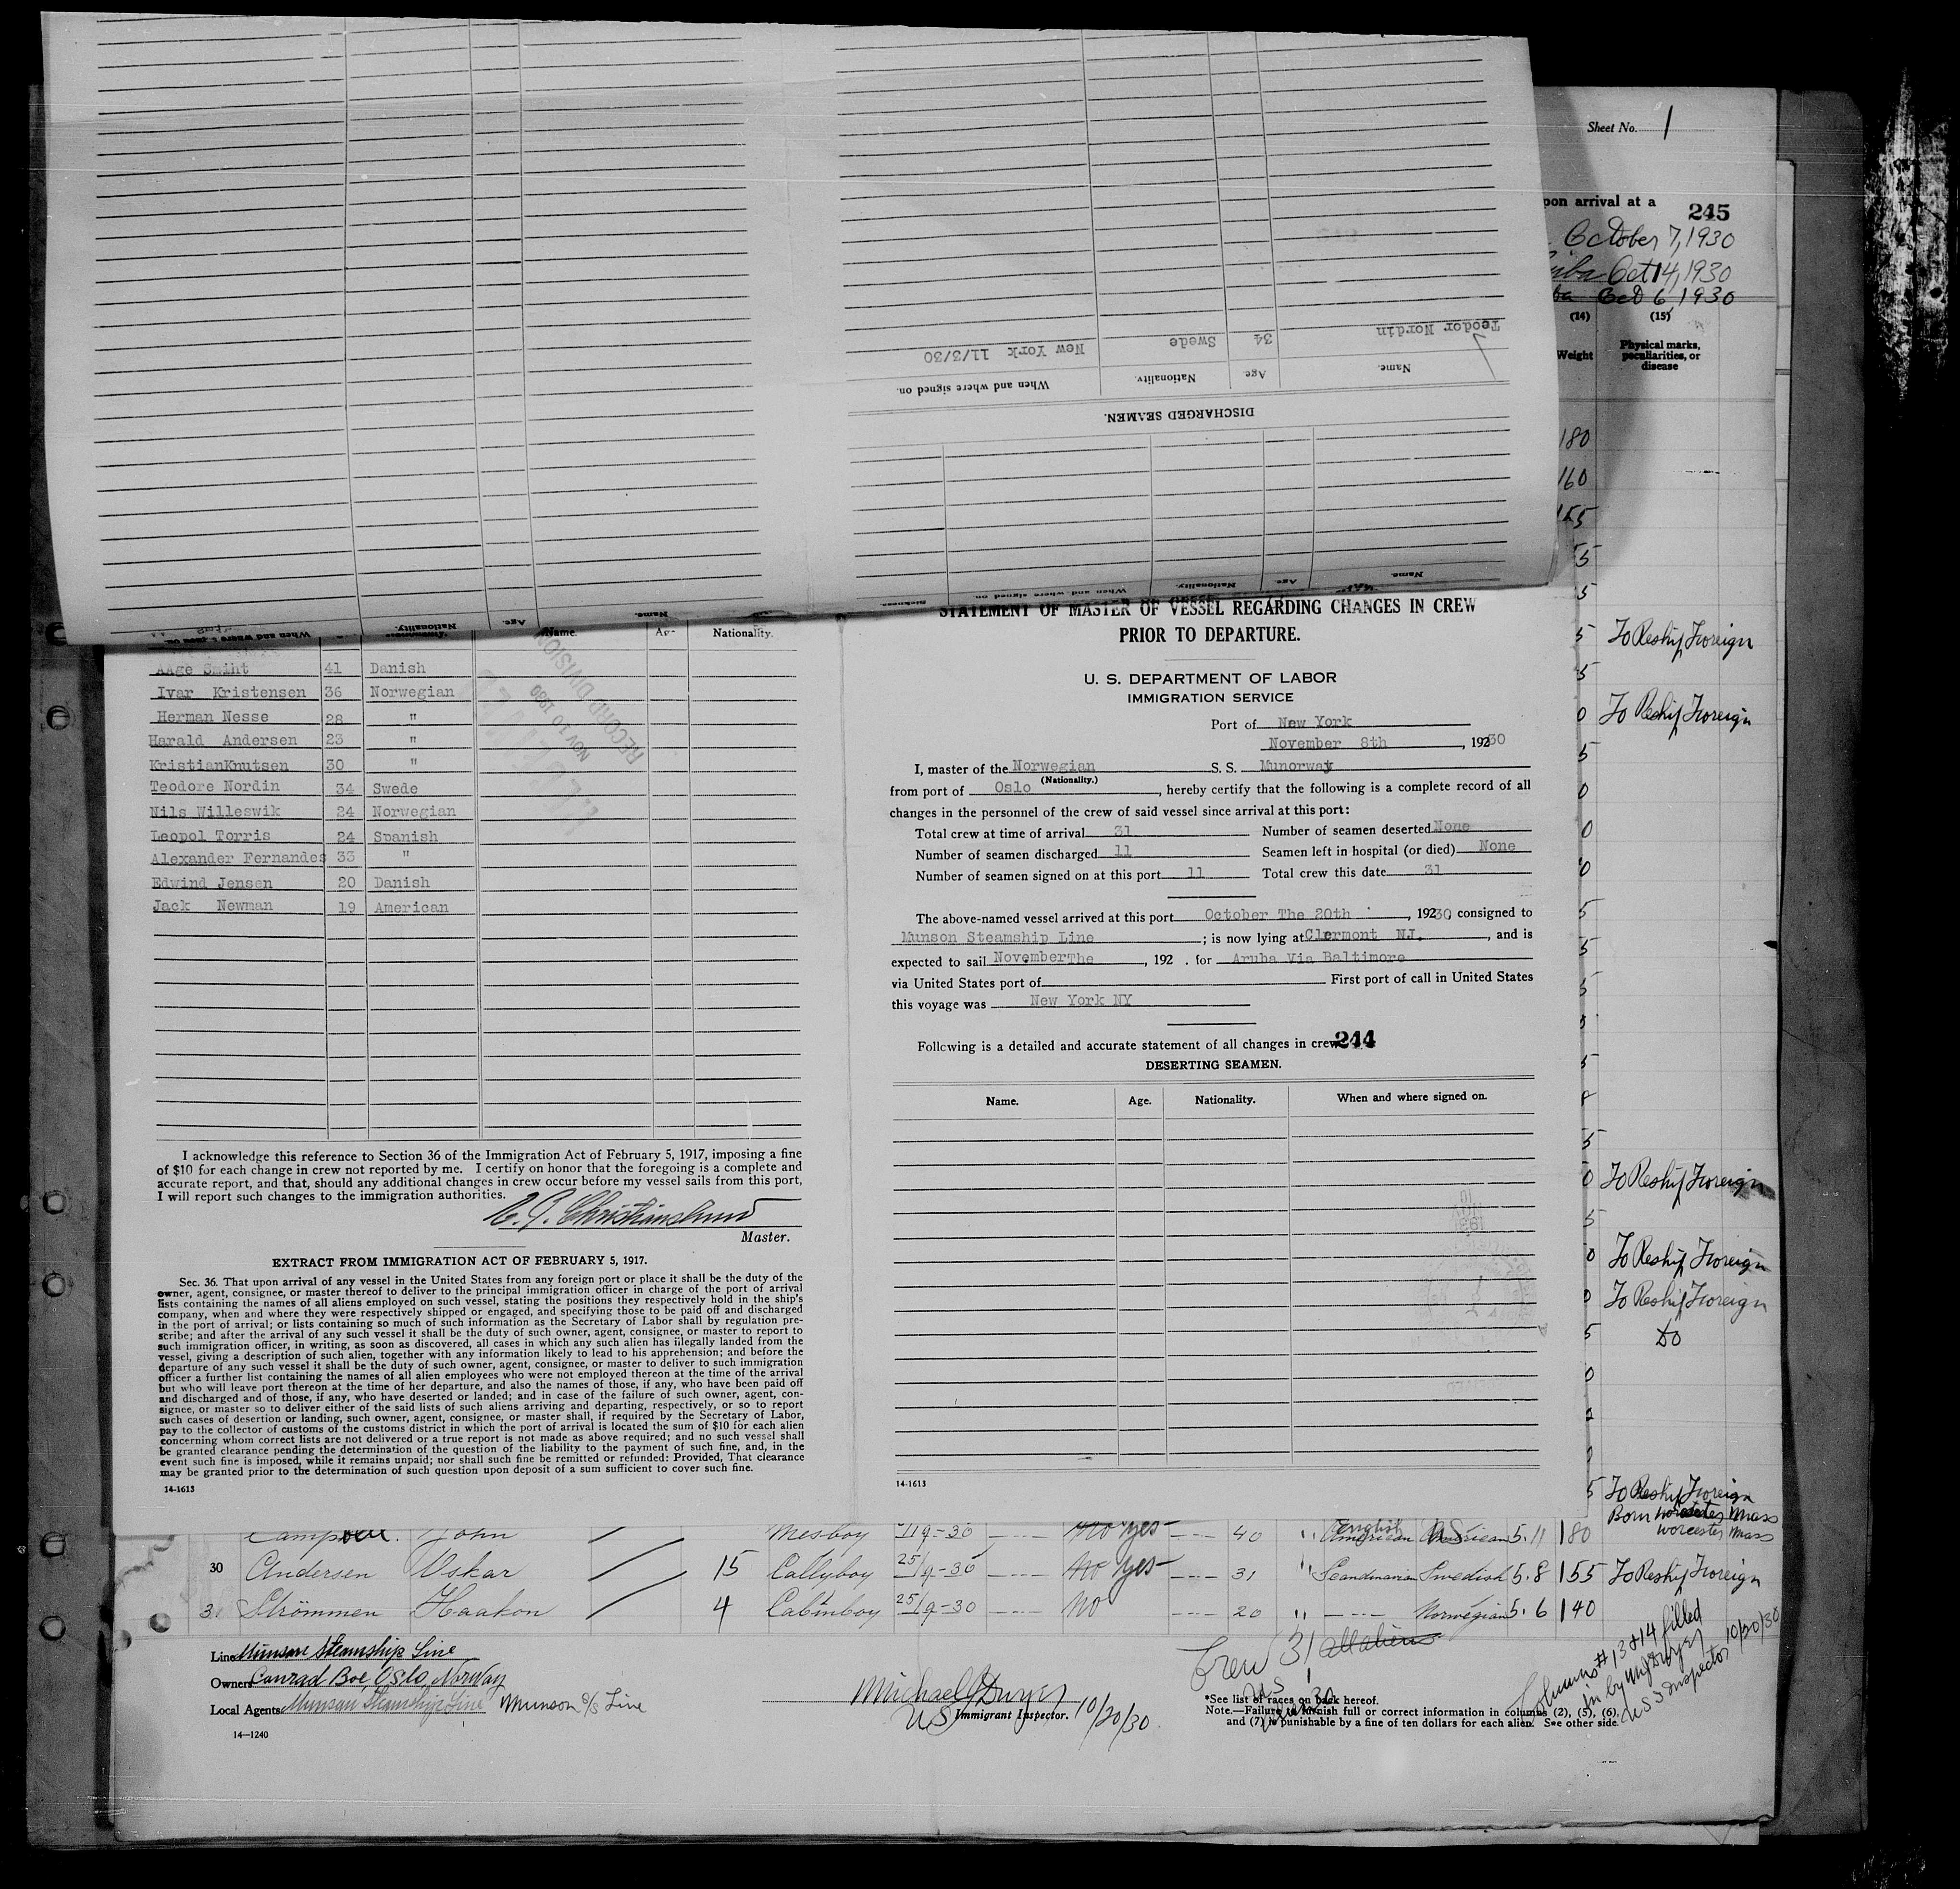 Sheet No. 1
pon arrival at a
245
October 7, 1930
Oct 14, 1930
Oct 6 1930
(14) (15)
Weight Physical marks, peculiarities, or disease
180
160
155
To Reship Foreign
To Reship Foreign
To Reship Foreign
To Reship Foreign
To Reship Foreign
Do
To Reship Foreign
Born Worcester Mass
Worcester Mass
DISCHARGED SEAMEN.
Name. Age. Nationality. When and where signed on.
Teodor Nordin 34 Swede New York 11/3/30
Name. Age. Nationality. When and where signed on. Sickness.
Name. Age. Nationality. When and where signed on.
Name. Nationality.
Aage Smiht 41 Danish
Ivar Kristensen 36 Norwegian
Herman Nesse 28 "
Harald Andersen 23 "
KristianKnutsen 30 "
Teodore Nordin 34 Swede
Nils Willeswik 24 Norwegian
Leopol Torris 24 Spanish
Alexander Fernandes 33 "
Edwind Jensen 20 Danish
Jack Newman 19 American
RECORD DIVISION
NOV 10 1930
I acknowledge this reference to Section 36 of the Immigration Act of February 5, 1917, imposing a fine
of $10 for each change in crew not reported by me. I certify on honor that the foregoing is a complete and
accurate report, and that, should any additional changes in crew occur before my vessel sails from this port,
I will report such changes to the immigration authorities.
Master.
EXTRACT FROM IMMIGRATION ACT OF FEBRUARY 5, 1917.
Sec. 36. That upon arrival of any vessel in the United States from any foreign port or place it shall be the duty of the
owner, agent, consignee, or master thereof to deliver to the principal immigration officer in charge of the port of arrival
lists containing the names of all aliens employed on such vessel, stating the positions they respectively hold in the ship's
company, when and where they were respectively shipped or engaged, and specifying those to be paid off and discharged
in the port of arrival; or lists containing so much of such information as the Secretary of Labor shall by regulation pre-
scribe; and after the arrival of any such vessel it shall be the duty of such owner, agent, consignee, or master to report to
such immigration officer, in writing, as soon as discovered, all cases in which any such alien has illegally landed from the
vessel, giving a description of such alien, together with any information likely to lead to his apprehension; and before the
departure of any such vessel it shall be the duty of such owner, agent, consignee, or master to deliver to such immigration
officer a further list containing the names of all alien employees who were not employed thereon at the time of the arrival
but who will leave port thereon at the time of her departure, and also the names of those, if any, who have been paid off
and discharged and of those, if any, who have deserted or landed; and in case of the failure of such owner, agent, con-
signee, or master so to deliver either of the said lists of such aliens arriving and departing, respectively, or so to report
such cases of desertion or landing, such owner, agent, consignee, or master shall, if required by the Secretary of Labor,
pay to the collector of customs of the customs district in which the port of arrival is located the sum of $10 for each alien
concerning whom correct lists are not delivered or a true report is not made as above required; and no such vessel shall
be granted clearance pending the determination of the question of the liability to the payment of such fine, and, in the
event such fine is imposed, while it remains unpaid; nor shall such fine be remitted or refunded: Provided, That clearance
may be granted prior to the determination of such question upon deposit of a sum sufficient to cover such fine.
14-1613
STATEMENT OF MASTER OF VESSEL REGARDING CHANGES IN CREW
PRIOR TO DEPARTURE.
U. S. DEPARTMENT OF LABOR
IMMIGRATION SERVICE
Port of New York
November 8th, 19230
I, master of the Norwegian S. S. Munorway
(Nationality.)
from port of Oslo, hereby certify that the following is a complete record of all
changes in the personnel of the crew of said vessel since arrival at this port:
Total crew at time of arrival 31 Number of seamen deserted None
Number of seamen discharged 11 Seamen left in hospital (or died) None
Number of seamen signed on at this port 11 Total crew this date 31
The above-named vessel arrived at this port October The 20th, 19230, consigned to
Munson Steamship Line; is now lying at Clermont NJ., and is
expected to sail NovemberThe, 192 . for Aruba Via Baltimore
via United States port of First port of call in United States
this voyage was New York NY
Following is a detailed and accurate statement of all changes in crew 244
DESERTING SEAMEN.
Name. Age. Nationality. When and where signed on.
14-1613
Campbell. John Mesboy 11/9-30 No yes 40 " English American U.S. American 5.11 180
30 Andersen Oskar 15 Gallyboy 25/9-30 No yes 31 " Scandinavian Swedish 5.8 155 To Reship Foreign
3 Strömmen Haakon 4 Cabinboy 25/9-30 No 20 " Norwegian 5.6 140
Line Munson Steamship Line
Owners Conrad Boe, Oslo, Norway
Local Agents Munson Steamship Line Munson S/S Line
14—1240
Michael J Dwyer
US Immigrant Inspector. 10/20/30
Crew 31 all aliens
US 1
alien 30
*See list of races on back hereof.
Note.—Failure to furnish full or correct information in columns (2), (5), (6),
and (7) is punishable by a fine of ten dollars for each alien. See other side.
Columns #13 & 14 filled
in by M J Dwyer
US Inspector 10/20/30